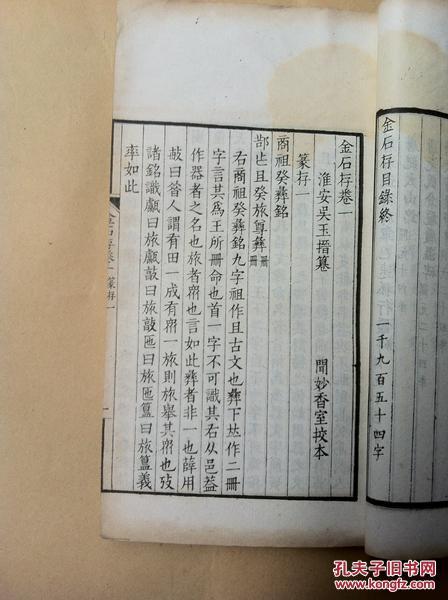 金石存目錄終
一千九百五十四字
金石存卷一
淮安吳玉搢纂 聞妙香室挍本
篆存
商祖癸彝銘
且癸旅尊彝冊冊
右商祖癸彝銘九字祖作且古文也彝下𠀤作二冊
字言其爲王所冊命也首一字不可識其右从邑葢
作器者之名也旅者𠈌也言如此彝者非一也薛用
敏曰昔人謂有田一成有𠈌一旅則旅舉其𠈌也攷
諸銘識甗曰旅甗敦曰旅敦匜曰旅匜簠曰旅簠義
率如此
金石存卷一 篆存 一
孔夫子旧书网